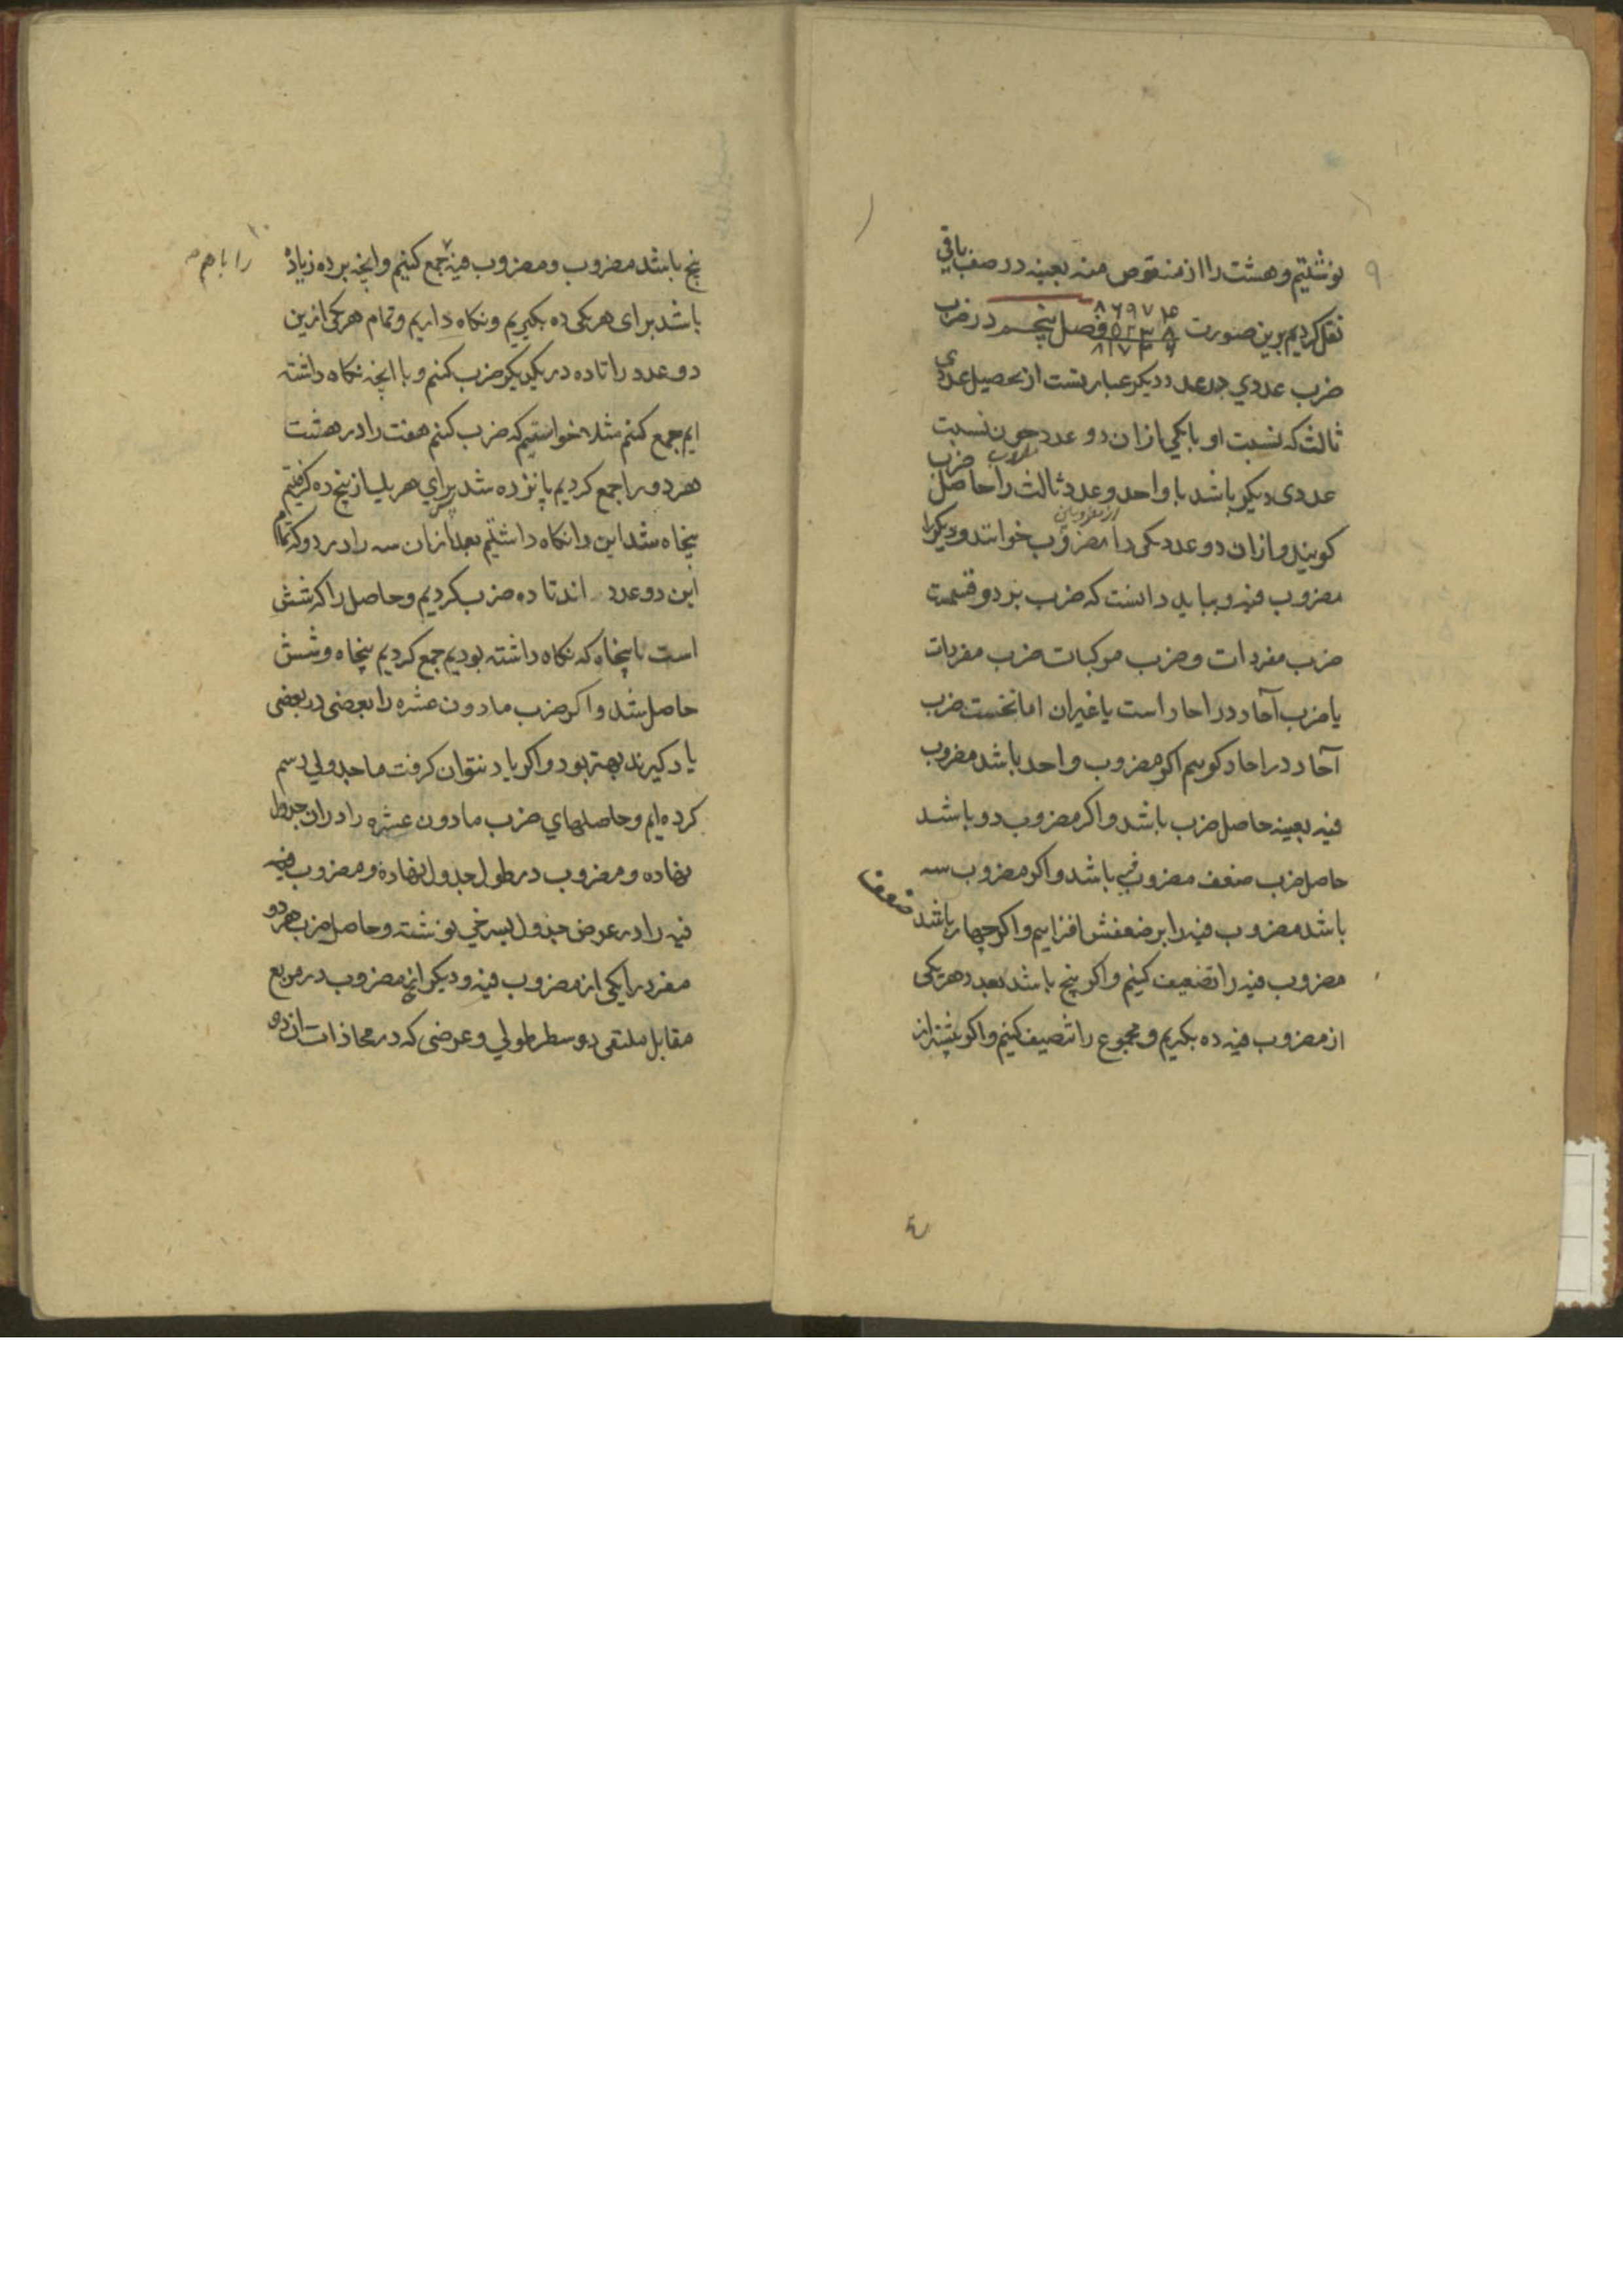 ۹
نوشتیم و هشت را از منقوص منه بعینه در صف باقی
نقل کردیم برین صورت فصل پنجم در ضرب
ضرب عددي در عدد دیکر عبارتست از تحصیل عددی
ثالث که نسبت او با یکی ازان دو عدد چون نسبت
عددی دیکر باشد با واحد و عدد ثالث را حاصل ضرب
از مضروبین
کویند و ازان دو عدد یکی را مضروب خوانند و دیکر را
مضروب فیه و بباید دانست که ضرب بر دو قسمت
ضرب مفردات و ضرب مرکبات ضرب مفردات
یا ضرب آحاد در احاد است یا غیران اما نخست ضرب
آحاد در احاد کوییم اکر مضروب واحد باشد مضروب
فیه بعینه حاصل ضرب باشد و اکر مضروب دو باشد
حاصل ضرب ضعف مضروب فیه باشد و اکر مضروب سه
باشد مضروب فیه را بر ضعفش افزاییم و اکر چهار باشد ضعف
مضروب فیه را تضعیف کنیم و اکر پنج باشد بعدد هر یکی
از مضروب فیه ده بکیریم و مجموع را تنصیف کنیم و اکر بیشتر از
۱۰
پنج باشد مضروب و مضروب فیه جمع کنیم و انچه بر ده زیاده
را با هم
باشد برای هر یکی ده بکیریم و نکاه داریم و تمام هر یکی ازین
دو عدد را تا ده در یکدیکر ضرب کنیم و با انچه نکاه داشته
ایم جمع کنیم مثلا خواستیم که ضرب کنیم هفت را در هشت
هر دو را جمع کردیم پانزده شد برای هر یک از پنج ده کرفتیم
پنجاه شد این را نکاه داشتیم بعد ازان سه را در دو که تمام
این دو عدد اند تا ده ضرب کردیم و حاصل را که شش
است با پنجاه که نکاه داشته بودیم جمع کردیم پنجاه و شش
حاصل شد و اکر ضرب مادون عشره را بعضی در بعضی
یاد کیرند بهتر بود و اکر یاد نتوان کرفت ما جدولی رسم
کرده ایم و حاصلهاي ضرب مادون عشره را دران جدول
نهاده و مضروب در طول جدول نهاده و مضروب فیه
فیه را در عرض جدول بسرخي نوشته و حاصل ضرب هر دو
مفرد را یکی از مضروب فیه و دیکر از مضروب در مربع
مقابل ملتقی دو سطر طولي و عرضی که در محاذات ان دو